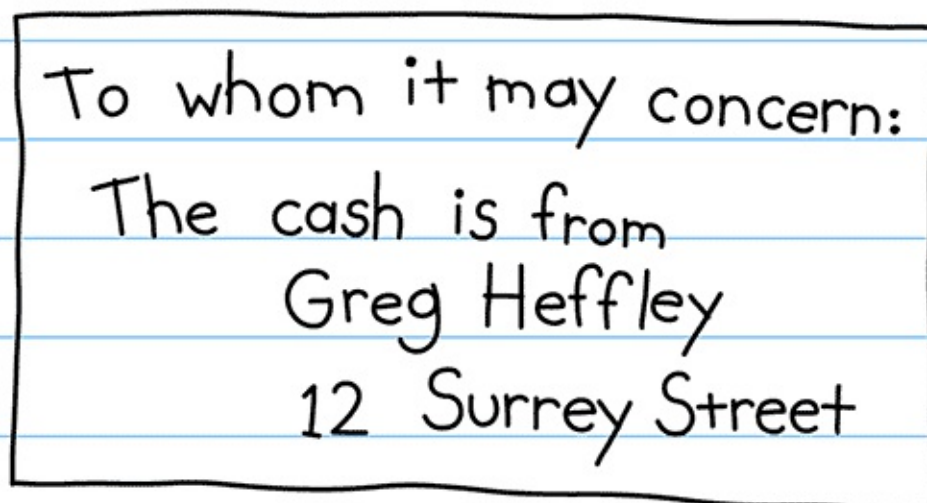 To whom it may concern:
The cash is from
Greg Heffley
12 Surrey Street